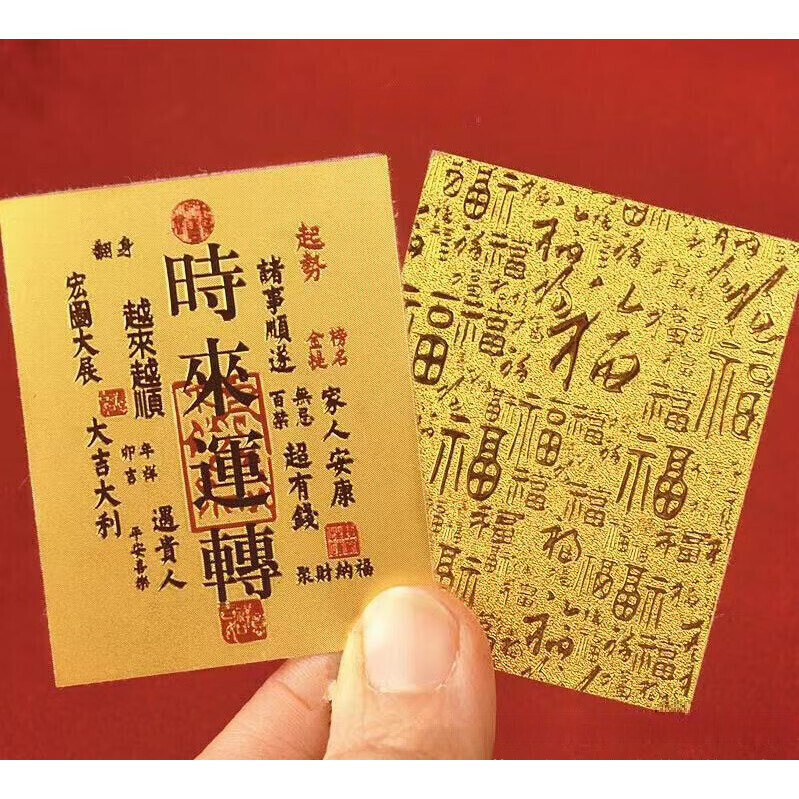 時來運轉
起勢
諸事順遂
金榜
題名
家人安康
百無
禁忌
超有錢
聚財納福
翻身
宏圖大展
越來越順
大吉大利
卯年
吉祥
遇貴人
平安喜樂
福
福
福
福
福
福
福
福
福
福
福
福